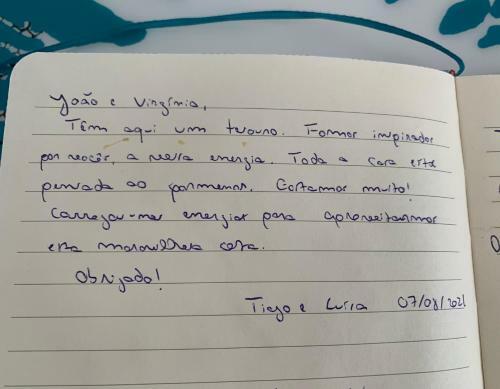 João e Virgínia,
Têm aqui um tesouro. Fomos inspirados
por vocês, a vossa energia. Toda a casa está
pensada ao pormenor. Gostamos muito!
Carregar-mos energias para aproveitarmos
esta maravilhosa costa.
Obrigado!
Tiago e Luísa 07/08/2021